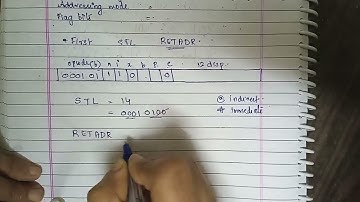 Addressing mode
Flag bits =
* First STL RETADR.
opcode(6) n i x b p e 12 disp
000101 1 1 0 0
STL = 14 @ Indirect
= 00010100 # Immediate
RETADR